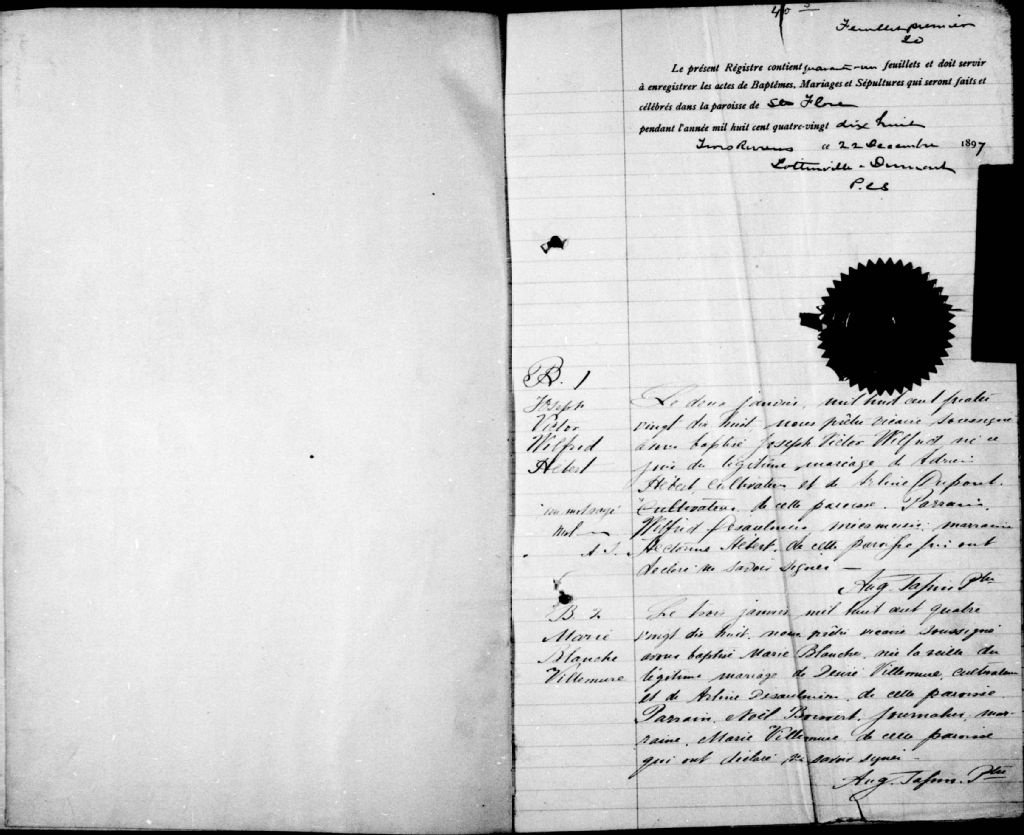 40
Feuillet premier
Le présent Régistre contient quarante-un feuillets et doit servir
à enregistrer les actes de Baptêmes, Mariages et Sépultures qui seront faits et
célébrés dans la paroisse de Ste Flore
pendant l'année mil huit cent quatre-vingt dix huit
Trois Rivieres ce 22 Decembre 1897
Lottinville - Dumont
P. C S
B. 1
Joseph
Victor
Wilfrid
Hébert
un mot rayé
nul
A. T.
Le deux janvier, mil huit cent quatre
vingt dix huit nous prêtre vicaire soussigné
avons baptisé Joseph Victor Wilfrid né ce
jour du légitime mariage de Adrien
Hébert, cultivateur et de Arline Dupont.
Cultivateur, de cette paroisse. Parrain,
Wilfrid Desaulniers, marraine
Hébert, de cette paroisse qui ont
declaré ne savoir signer —
Aug. Tessier Ptre
B 2
Marie
Blanche
Villemure
Le trois janvier mil huit cent quatre
vingt dix huit, nous prêtre vicaire soussigné
avons baptisé Marie Blanche, née la veille du
légitime mariage de Désiré Villemure, cultivateur
et de Arline Desaulniers, de cette paroisse
Parrain, Noël Boisvert, journalier, mar-
raine, Marie Villemure de cette paroisse
qui ont déclaré ne savoir signer -
Aug. Ptre